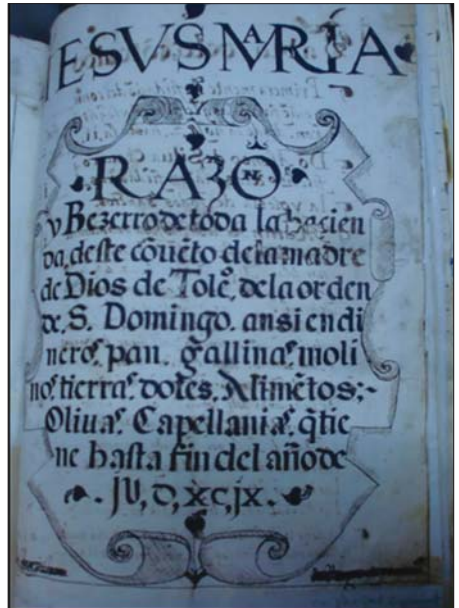 IESVS MARIA
RAZON
y Bezerro de toda la hacien
da, deste cōuēto de la madre
de Dios de Tole.º de la orden
de, S. Domingo. ansi en di
neros. pan. gallinas. moli
nos. tierras. dotes. Alimētos;-
Olivas. Capellanias. q̄ tie
ne hasta fin del año de
.IU, D, XC, IX.